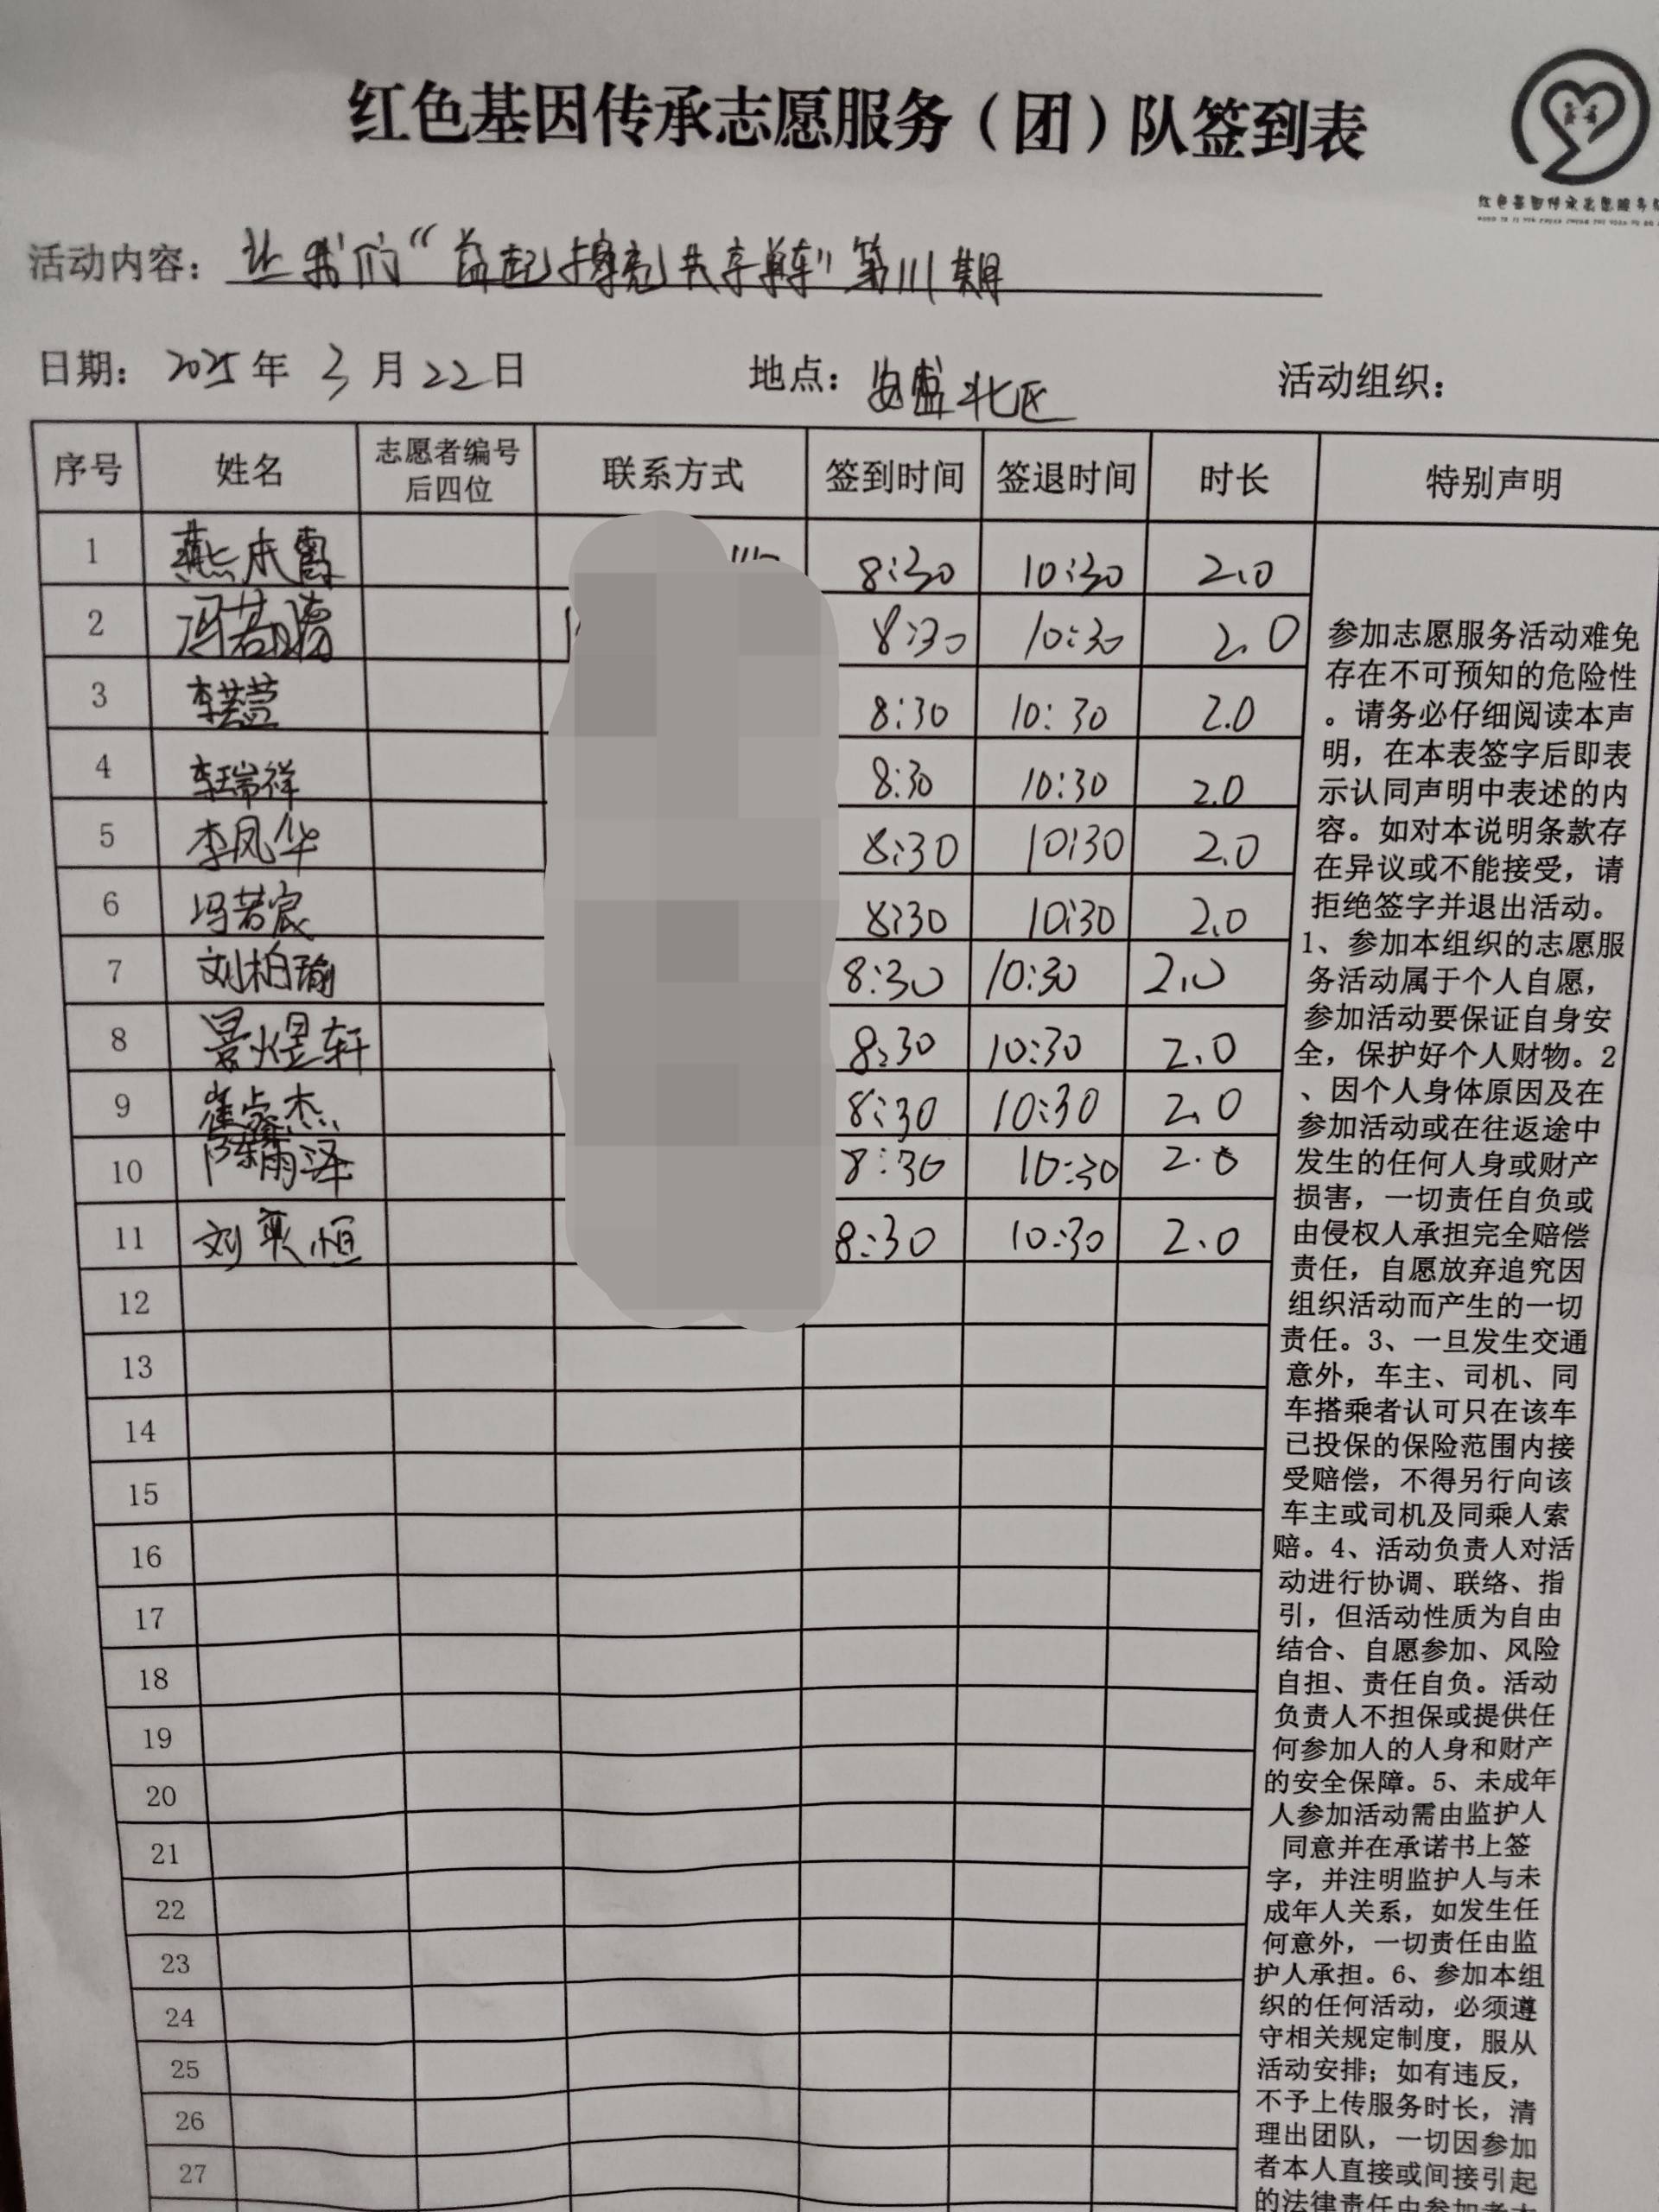 红色基因传承志愿服务（团）队签到表
活动内容：让我们“益起擦亮共享单车”第111期
日期：2025年3月22日 地点：北区 活动组织：
序号 姓名 志愿者编号后四位 联系方式 签到时间 签退时间 时长 特别声明
1 燕 8:30 10:30 2.0
2 冯若 8:30 10:30 2.0
3 李 8:30 10:30 2.0
4 李瑞祥 8:30 10:30 2.0
5 李凤华 8:30 10:30 2.0
6 冯若宸 8:30 10:30 2.0
7 刘柏瑜 8:30 10:30 2.0
8 景煜轩 8:30 10:30 2.0
9 崔杰 8:30 10:30 2.0
10 陈雨泽 8:30 10:30 2.0
11 刘恒 8:30 10:30 2.0
12
13
14
15
16
17
18
19
20
21
22
23
24
25
26
27
参加志愿服务活动难免
存在不可预知的危险性
。请务必仔细阅读本声
明，在本表签字后即表
示认同声明中表述的内
容。如对本说明条款存
在异议或不能接受，请
拒绝签字并退出活动。
1、参加本组织的志愿服
务活动属于个人自愿，
参加活动要保证自身安
全，保护好个人财物。2
、因个人身体原因及在
参加活动或在往返途中
发生的任何人身或财产
损害，一切责任自负或
由侵权人承担完全赔偿
责任，自愿放弃追究因
组织活动而产生的一切
责任。3、一旦发生交通
意外，车主、司机、同
车搭乘者认可只在该车
已投保的保险范围内接
受赔偿，不得另行向该
车主或司机及同乘人索
赔。4、活动负责人对活
动进行协调、联络、指
引，但活动性质为自由
结合、自愿参加、风险
自担、责任自负。活动
负责人不担保或提供任
何参加人的人身和财产
的安全保障。5、未成年
人参加活动需由监护人
同意并在承诺书上签
字，并注明监护人与未
成年人关系，如发生任
何意外，一切责任由监
护人承担。6、参加本组
织的任何活动，必须遵
守相关规定制度，服从
活动安排；如有违反，
不予上传服务时长，清
理出团队，一切因参加
者本人直接或间接引起
的法律责任由参加者本